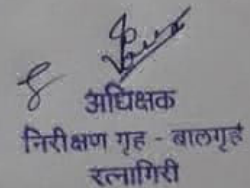 अधिक्षक
निरीक्षण गृह - बालगृह
रत्नागिरी